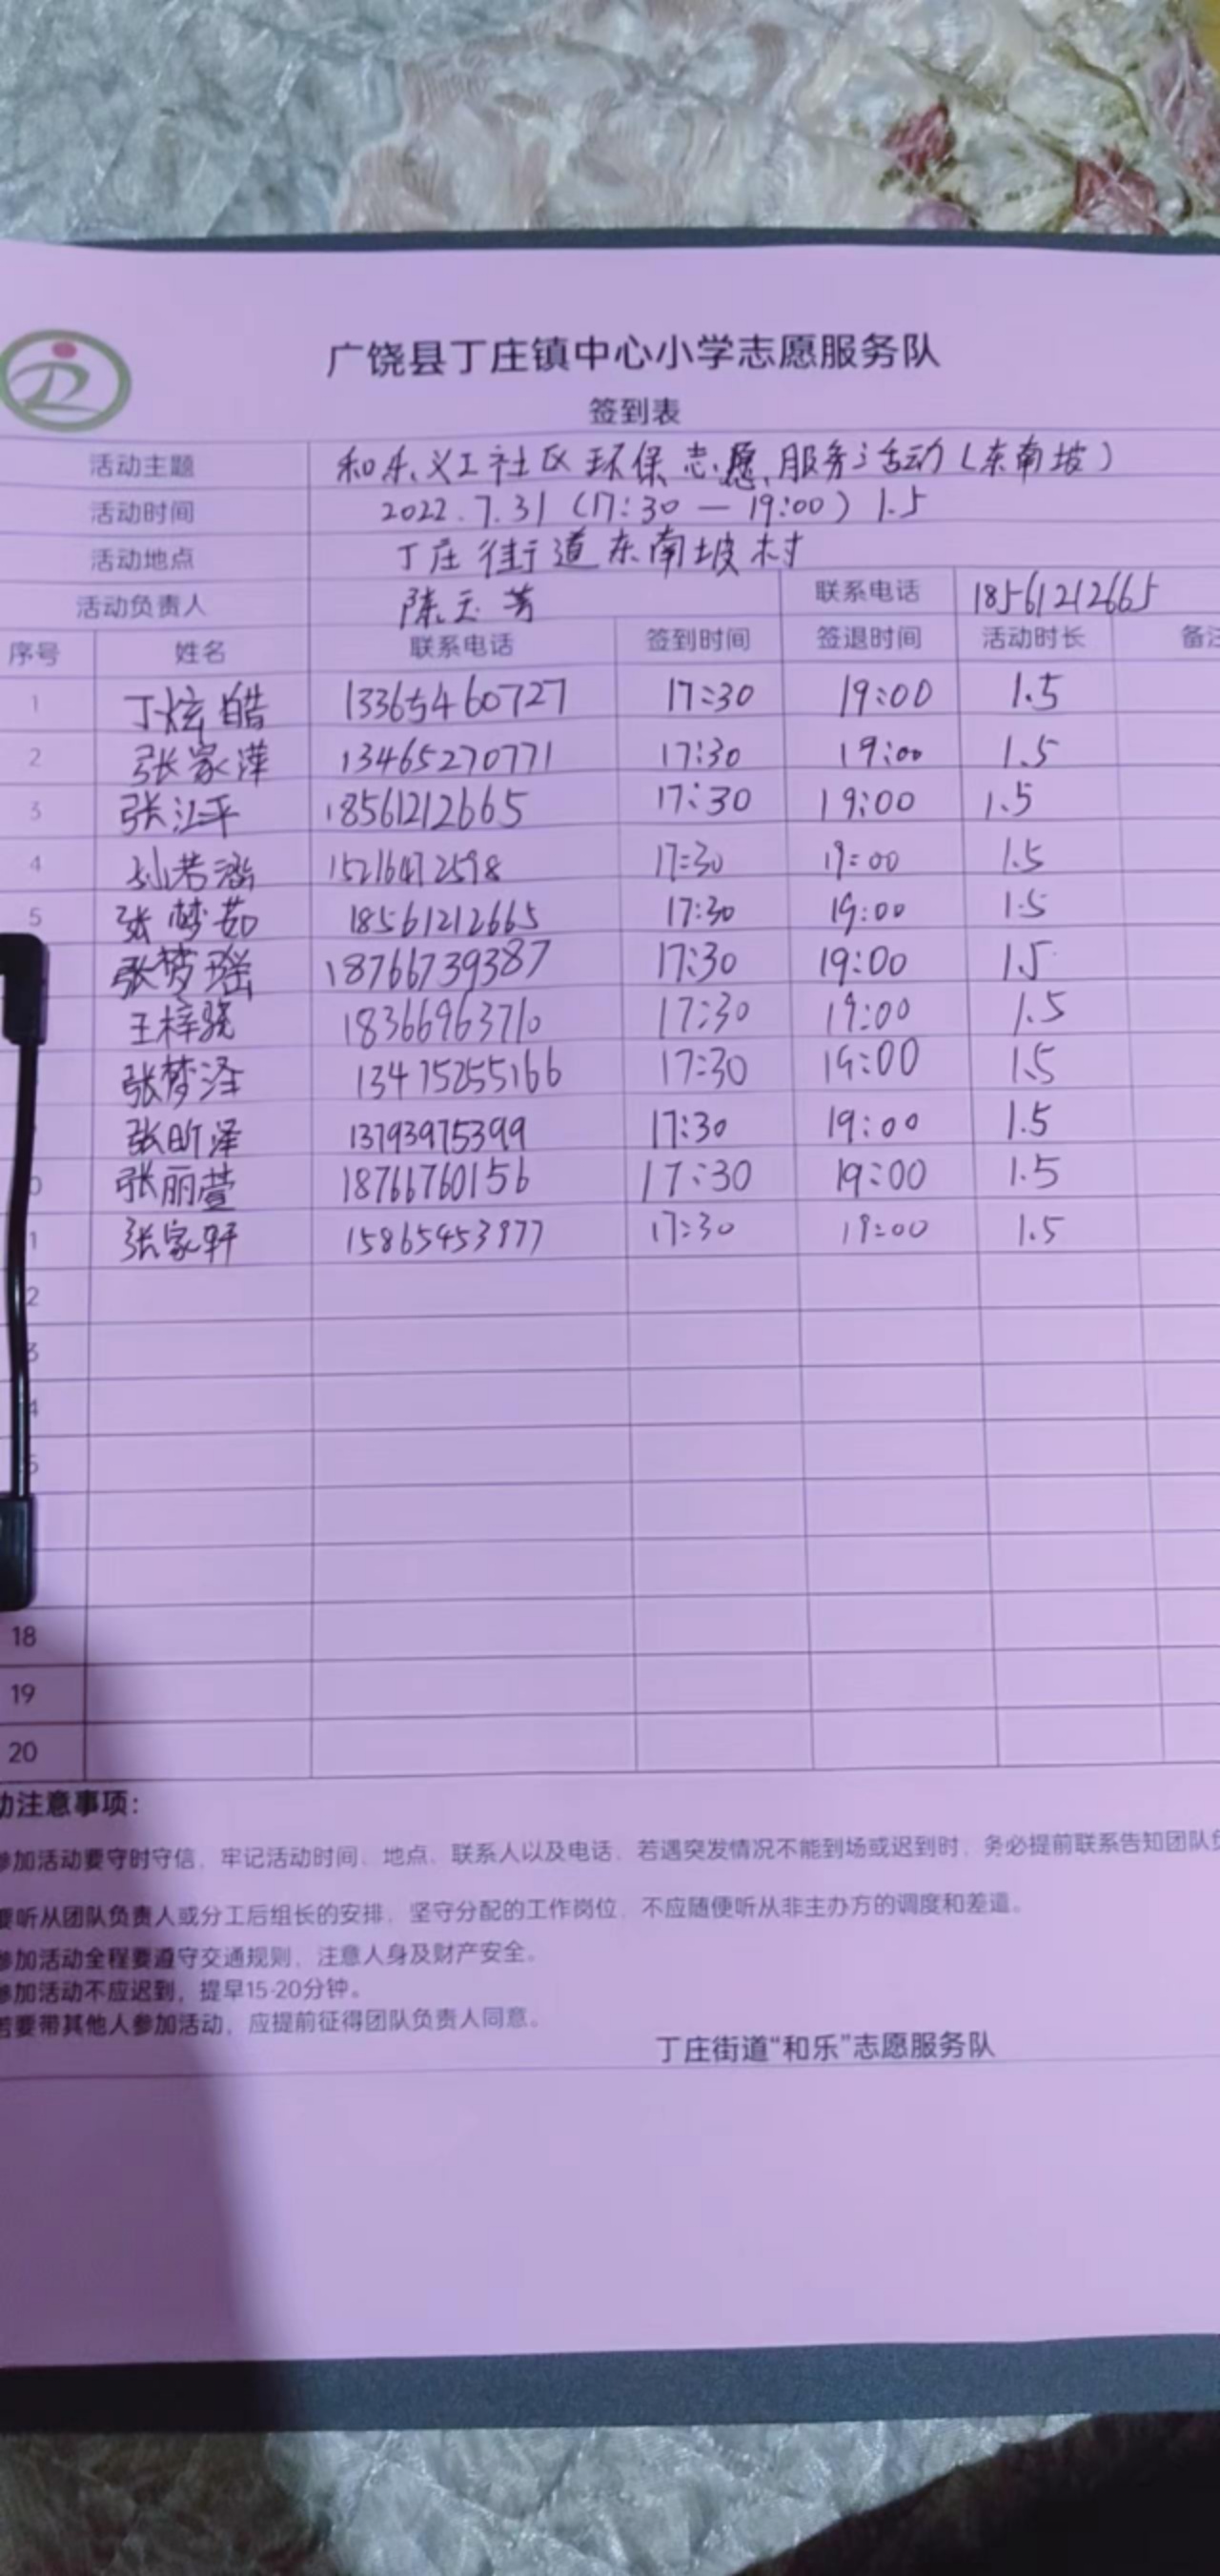 广饶县丁庄镇中心小学志愿服务队
签到表
活动主题 和乐义工社区环保志愿服务活动(东南坡)
活动时间 2022.7.31(17:30—19:00)1.5
活动地点 丁庄街道东南坡村
活动负责人 陈玉芳 联系电话 18561212665
序号 姓名 联系电话 签到时间 签退时间 活动时长 备注
1 丁炫皓 13365460727 17:30 19:00 1.5
2 张家潍 13465270771 17:30 19:00 1.5
3 张江平 18561212665 17:30 19:00 1.5
4 孙若涵 15216472598 17:30 19:00 1.5
5 张梦茹 18561212665 17:30 19:00 1.5
张梦瑶 18766739387 17:30 19:00 1.5
王梓骁 18366963710 17:30 19:00 1.5
张梦泽 13475255166 17:30 19:00 1.5
张昕泽 13793975399 17:30 19:00 1.5
0 张丽萱 18766760156 17:30 19:00 1.5
1 张家轩 15865453977 17:30 19:00 1.5
2
3
4
5
18
19
20
动注意事项:
参加活动要守时守信,牢记活动时间、地点、联系人以及电话,若遇突发情况不能到场或迟到时,务必提前联系告知团队负
要听从团队负责人或分工后组长的安排,坚守分配的工作岗位,不应随便听从非主办方的调度和差遣。
参加活动全程要遵守交通规则,注意人身及财产安全。
参加活动不应迟到,提早15-20分钟。
若要带其他人参加活动,应提前征得团队负责人同意。
丁庄街道“和乐”志愿服务队